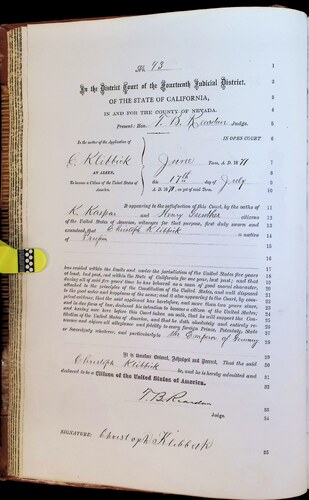 No. 43
In the District Court of the Fourteenth Judicial District.
OF THE STATE OF CALIFORNIA,
IN AND FOR THE COUNTY OF NEVADA.
Present: Hon. T. B. Reardan Judge.
IN OPEN COURT
In the matter of the Application of
C. Klebbick June Term, A. D. 1871
AN ALIEN, this 17th day of July
To become a Citizen of the United States of America. A. D. 1871, as yet of said Term.
It appearing to the satisfaction of this Court, by the oaths of
K. Kaspar and Henry citizens
of the United States of America, witnesses for that purpose, first duly sworn and
examined, that Christoph Klebbick a native
of Prussia
has resided within the limits and under the jurisdiction of the United States five years
at least, last past, and within the State of California for one year, last past; and that
during all of said five years' time he has behaved as a man of good moral character,
attached to the principles of the Constitution of the United States, and well disposed
to the good order and happiness of the same; and it also appearing to the Court, by competent
evidence, that the said applicant has heretofore, and more than two years since,
and in due form of law, declared his intention to become a citizen of the United States,
and having now here before this Court taken an oath, that he will support the Constitution
of the United States of America, and that he doth absolutely and entirely renounce
and abjure all allegiance and fidelity to every foreign Prince, Potentate, State
or Sovereignty whatever, and particularly to the Emperor of Germany
It is therefore Ordered, Adjudged and Decreed, That the said
Christoph Klebbick be, and he is hereby admitted and
declared to be a Citizen of the United States of America.
T. B. Reardan
Judge.
SIGNATURE: Christoph Klebbick
1
2
3
4
5
6
7
8
9
10
11
12
13
14
15
16
17
18
19
20
21
22
23
24
25
26
27
28
29
30
31
32
33